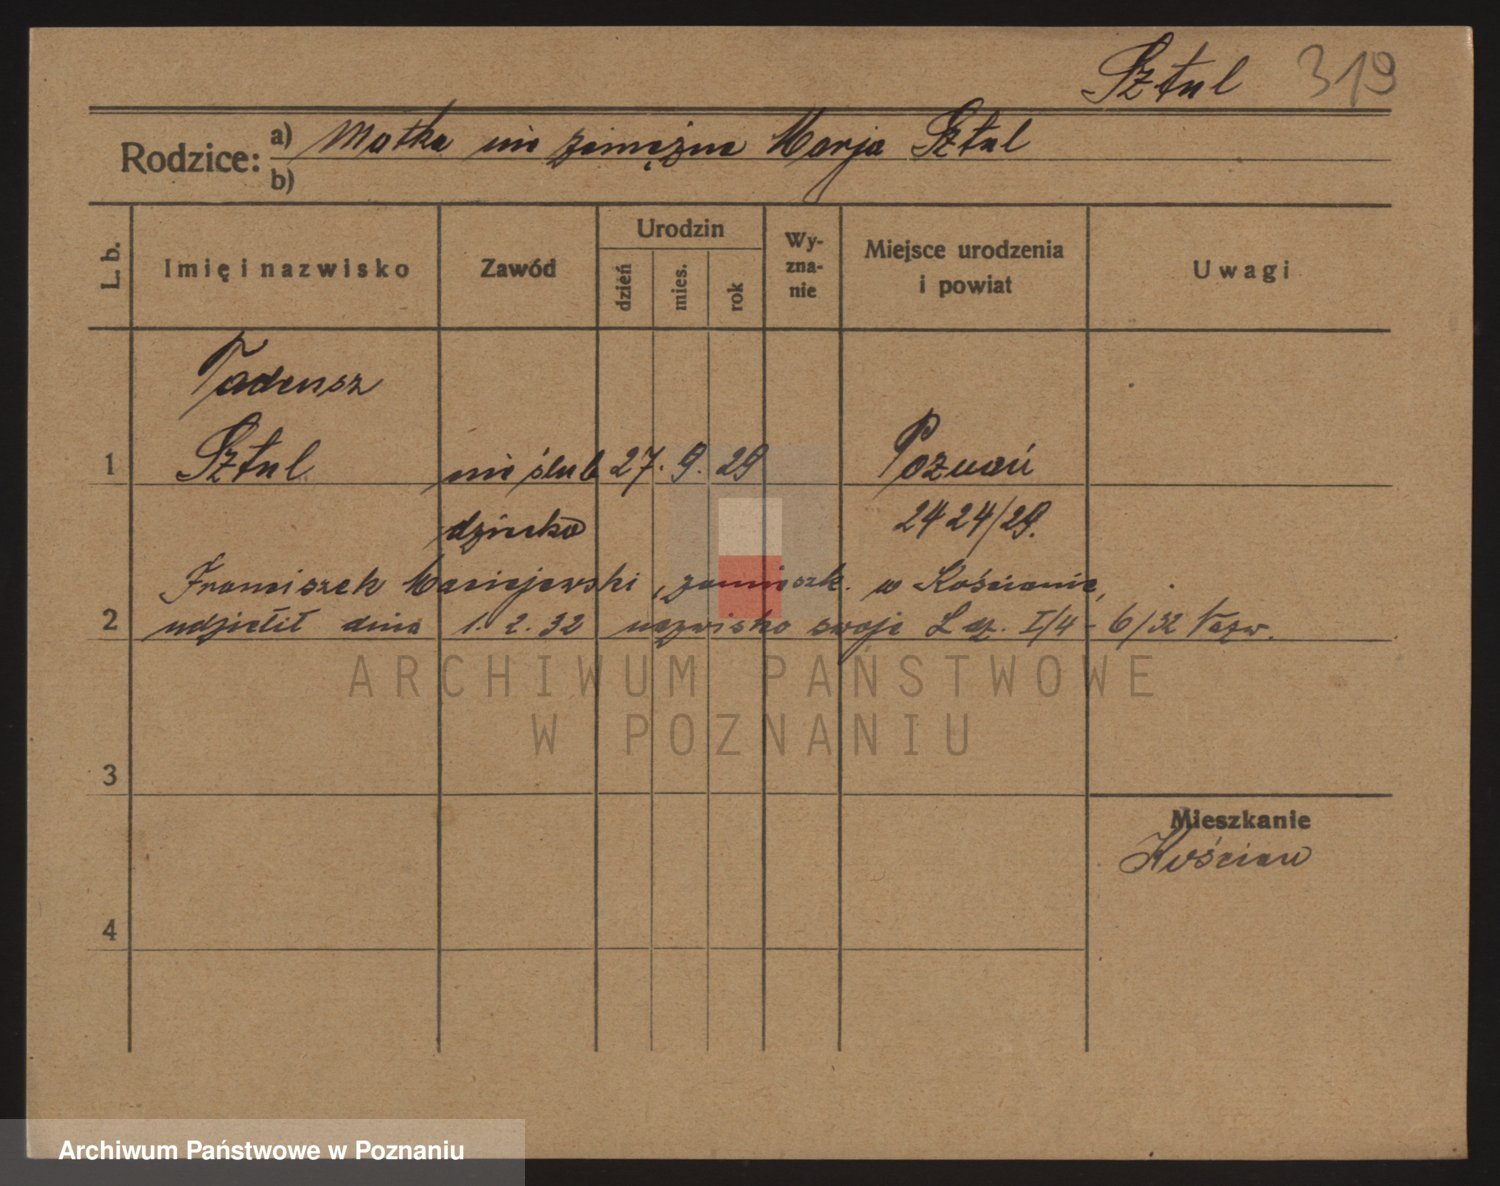 Sztul 319
Rodzice: a) Matka nie zamężna Marja Sztul
b)
L. b.
Imię i nazwisko
Zawód
Urodzin
dzień
mies.
rok
Wy-
zna-
nie
Miejsce urodzenia
i powiat
Uwagi
Tadeusz
1 Sztul nie ślub 27. 9. 29 Poznań
dziecko 2424/29.
Franciszek Maciejewski, zamieszk. w Kościanie,
2 udzielił dnia 1. 2. 32 nazwisko swoje L. I/4 - 6/32
ARCHIWUM PAŃSTWOWE
W POZNANIU
3
Mieszkanie
Kościan
4
Archiwum Państwowe w Poznaniu